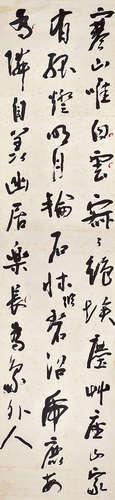 寒山唯白雲寂々絕埃塵艸座山家
有孤燈明月輪石床臨碧沼虎鹿每
為隣自羨幽居樂長為象外人